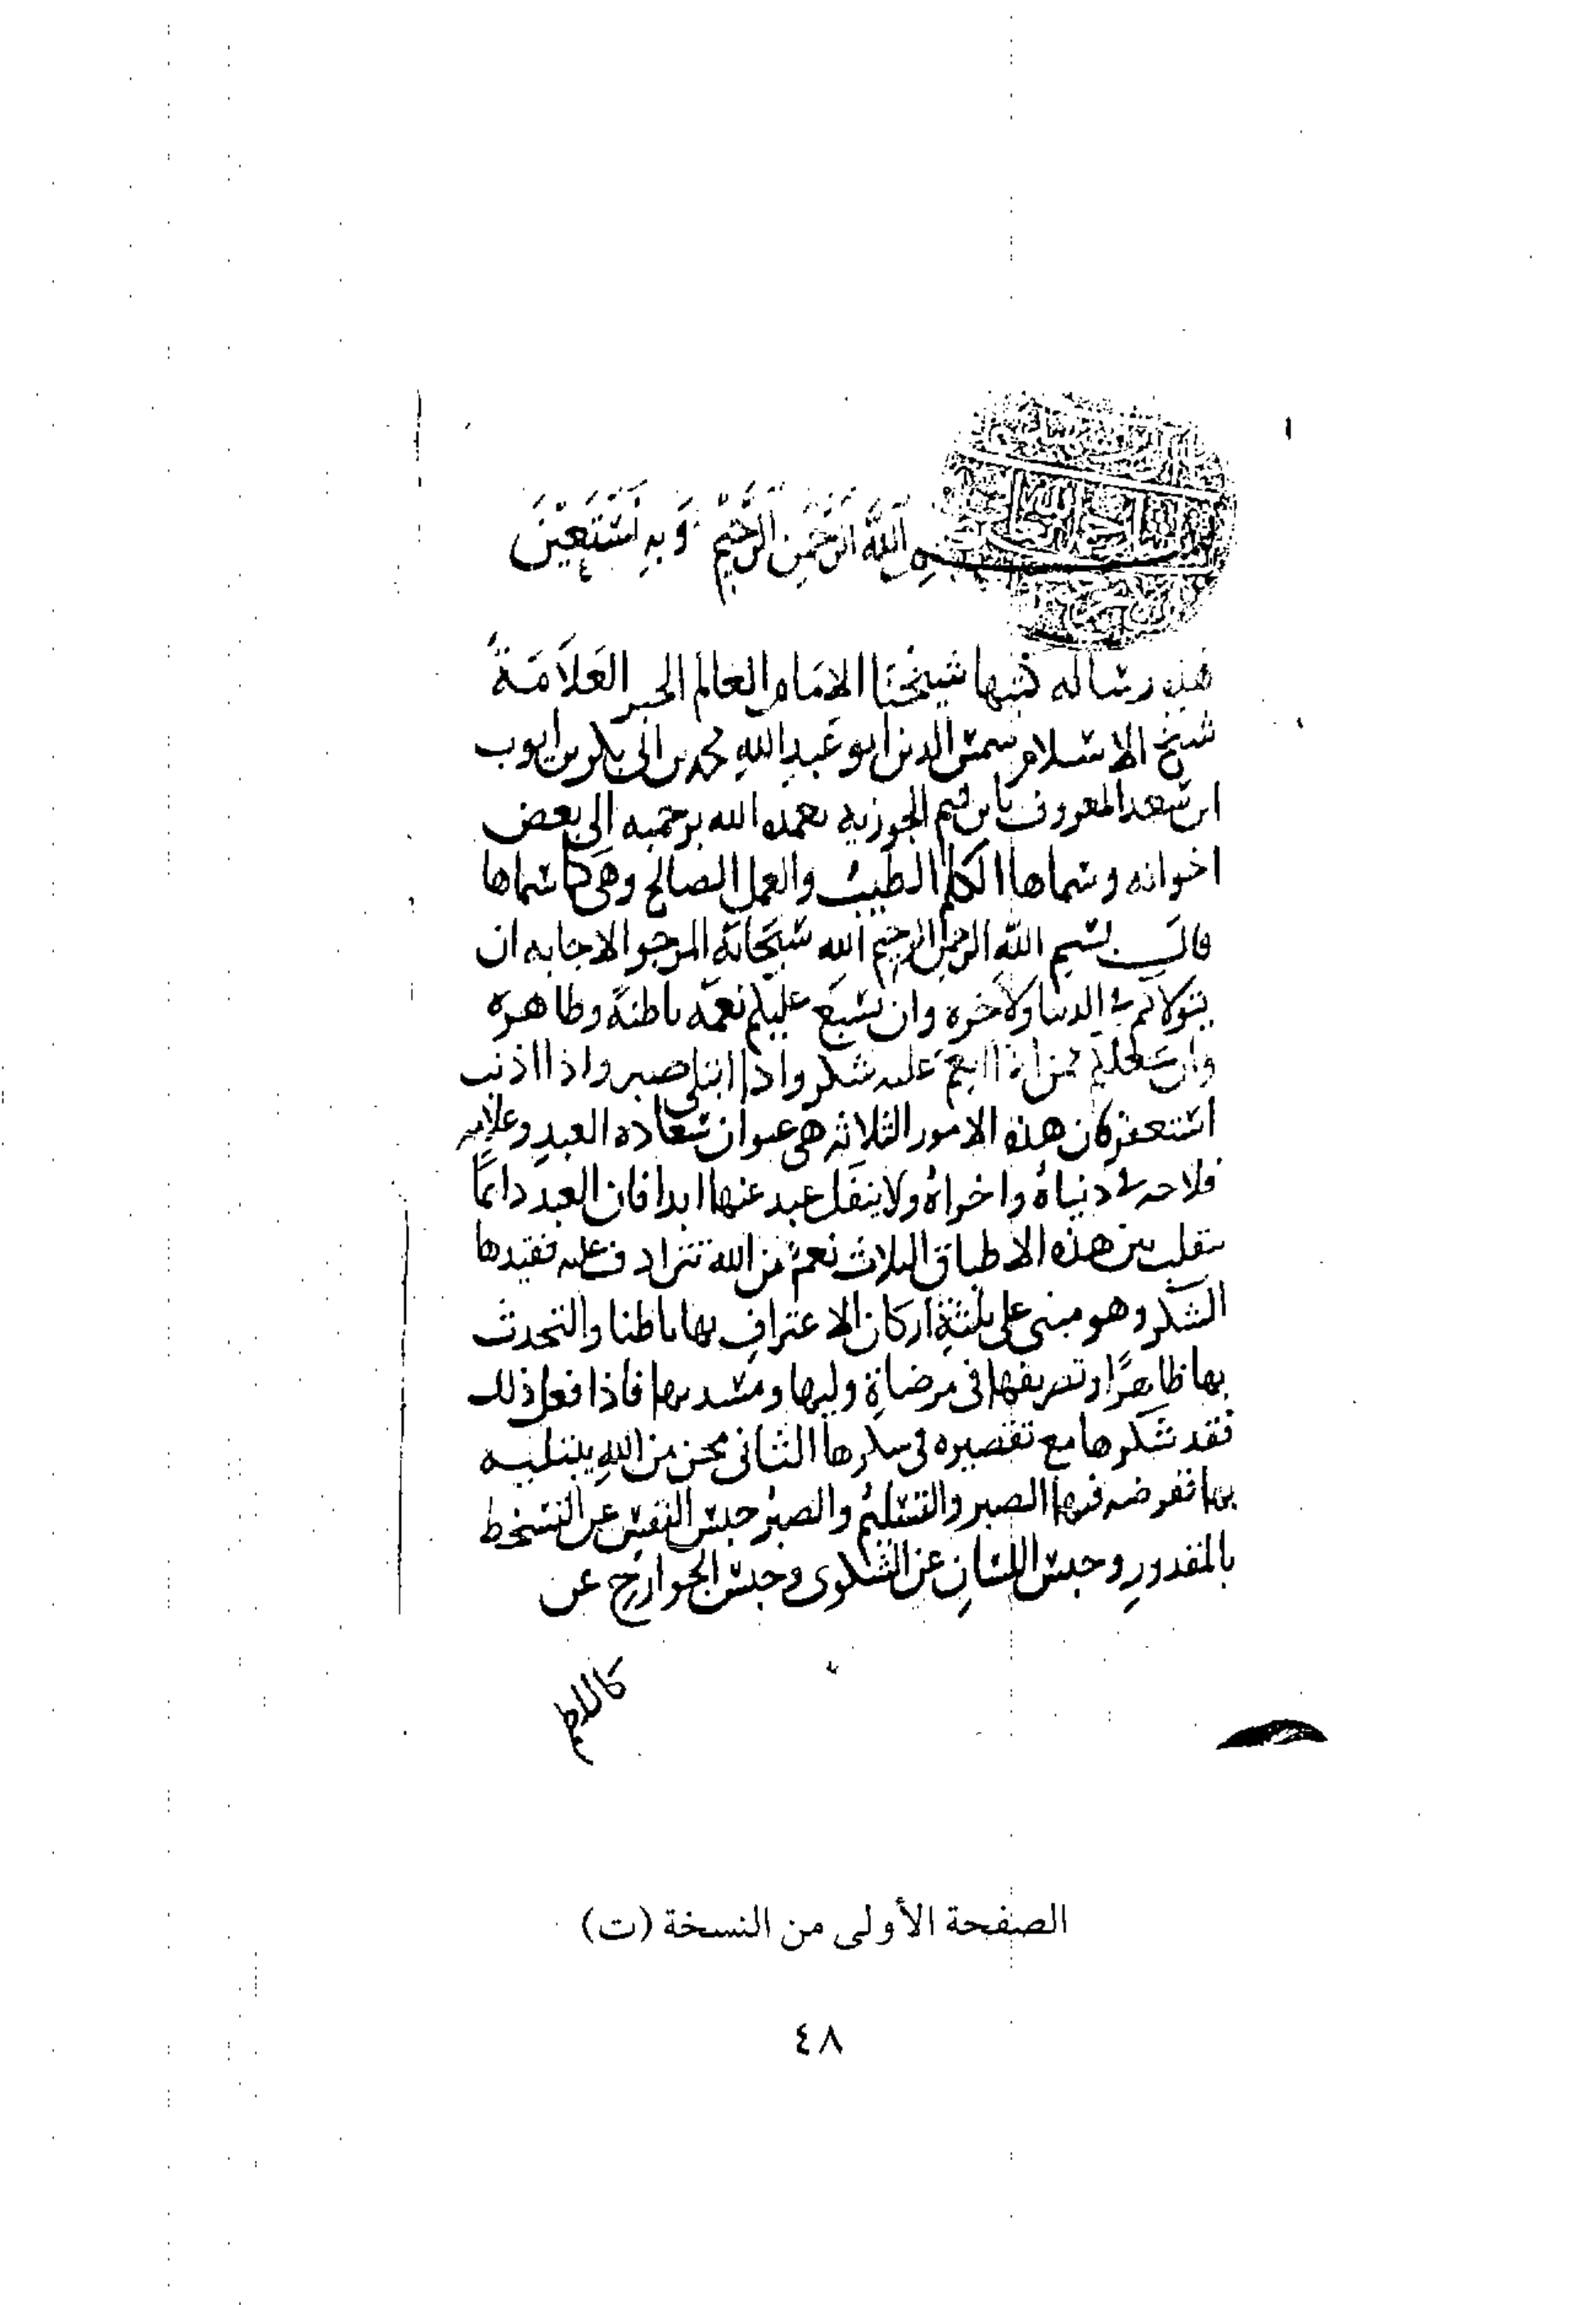 بسم الله الرحمن الرحيم وبه نستعين
هذه رساله كتبها شيخنا الامام العالم الحبر العلامة
شيخ الاسلام شمس الدين ابو عبد الله محمد بن ابى بكر بن ايوب
ابن سعد المعروف بابن قيم الجوزية تغمده الله برحمته الى بعض
اخوانه وسماها الكلم الطيب والعمل الصالح وهى كما سماها
قال بسم الله الرحمن الرحيم الله سبحانه المرجو الاجابه ان
يتولاكم في الدنيا والاخره وان يسبغ عليكم نعمه باطنة وظاهره
وان يجعلكم ممن اذا انعم عليه شكر واذا ابتلى صبر واذا اذنب
استغفر فان هذه الامور الثلاثه هى عنوان سعاده العبد وعلامه
فلاحه في دنياه واخراه ولا ينفك عبد عنها ابدا فان العبد دائما
يتقلب بين هذه الاطباق الثلاث نعم من الله تترادف عليه فقيدها
الشكر وهو مبنى على ثلثة اركان الاعتراف بها باطنا والتحدث
بها ظاهرا وتصريفها فى مرضاة وليها ومسديها فاذا فعل ذلك
فقد شكرها مع تقصيره فى شكرها الثانى محن من الله يبتليه
بها ففرضه فيها الصبر والتسليم والصبر حبس النفس عن التسخط
بالمقدور وحبس اللسان عن الشكوى وحبس الجوارح عن
كاللطم
الصفحة الأولى من النسخة (ت)
٤٨